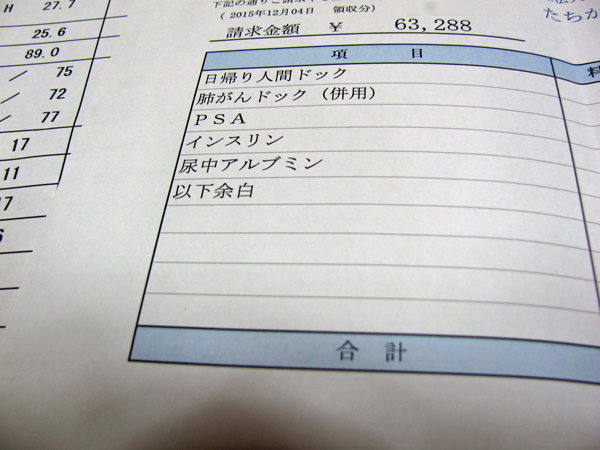 H 27.7
25.6
89.0
／ 75
／ 72
／ 77
17
11
17
6
(2015年12月04日 領収分)
請求金額 ￥ 63,288
項 目
料
日帰り人間ドック
肺がんドック（併用）
ＰＳＡ
インスリン
尿中アルブミン
以下余白
合 計
たちか